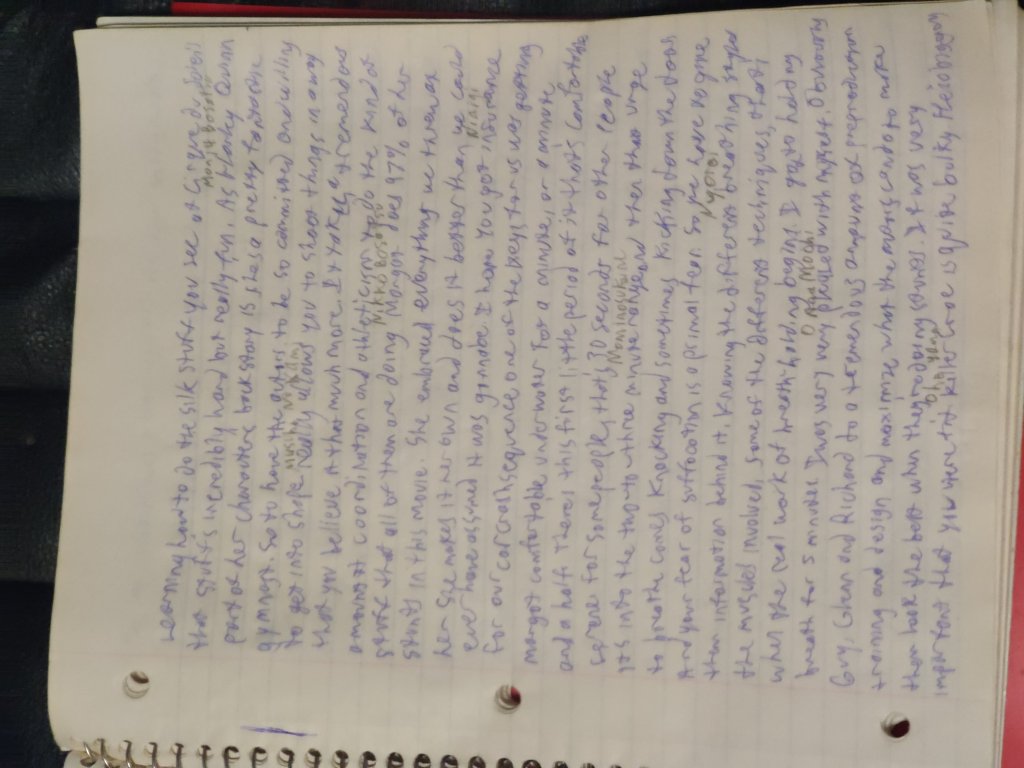 Learning how to do the silk stuff you see at Cirque du Soleil
that stunts incredibly hard but really fun. As Harley Quinn
part of her characters back story is shes a pretty badass
gymnast. So to have the actors to be so committed and willing
to get into shape really allows you to shoot things in a way
that you believe it that much more. It takes a tremendous
amount coordination and athleticism to do the kind of
stunts that all of them are doing Margot does 97% of her
stunts in this movie. She embraced everything we threw at
her she makes it her own and does it better than we could
ever have assumed it was gonna be. I hope you got insurance
for our corral sequence one of the keys for us was getting
margot comfortable underwater for a minute, or a minute
and a half. Theres this first little period of it thats comfortable
serene for some people, thats 30 seconds for other people
its into the two to three minute range and then that urge
to breathe comes knocking and sometimes kicking down the door
And your fear of suffocation is a primal fear. So we have to give
them information behind it. Knowing the different breathing stages
the muscles involved, some of the different techniques, thats
when the real work of breath holding begins. I got to holding
breath for 5 minutes I was very very pleased with myself. Obviously
Guy, Glenn and Richard to a tremendous amount of preproduction
training and design and maximize what the actors can do to make
them look the best when they're doing stunts. It was very
important that you were that killer croc is quite bulky, Hes obviously